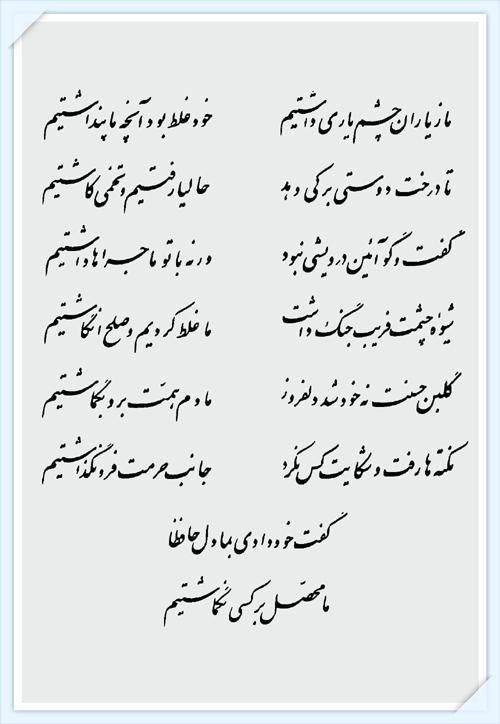 ما ز یاران چشم یاری داشتیم خود غلط بود آنچه ما پنداشتیم
تا درخت دوستی بر کی دهد حالیا رفتیم و تخمی کاشتیم
گفت و گو آئین درویشی نبود ورنه با تو ماجراها داشتیم
شیوه چشمت فریب جنگ داشت ما غلط کردیم و صلح انگاشتیم
گلبن حسنت نه خود شد دلفروز ما دم همت برو بگماشتیم
نکته ها رفت و شکایت کس نکرد جانب حرمت فرو نگذاشتیم
گفت خود دادی بما دل حافظا
ما محصل بر کسی نگماشتیم